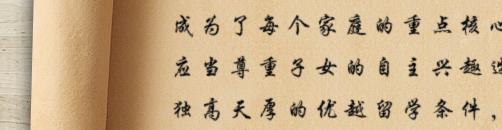 成为了每个家庭的重点核心
应当尊重子女的自主兴趣选
独高天厚的优越留学条件，